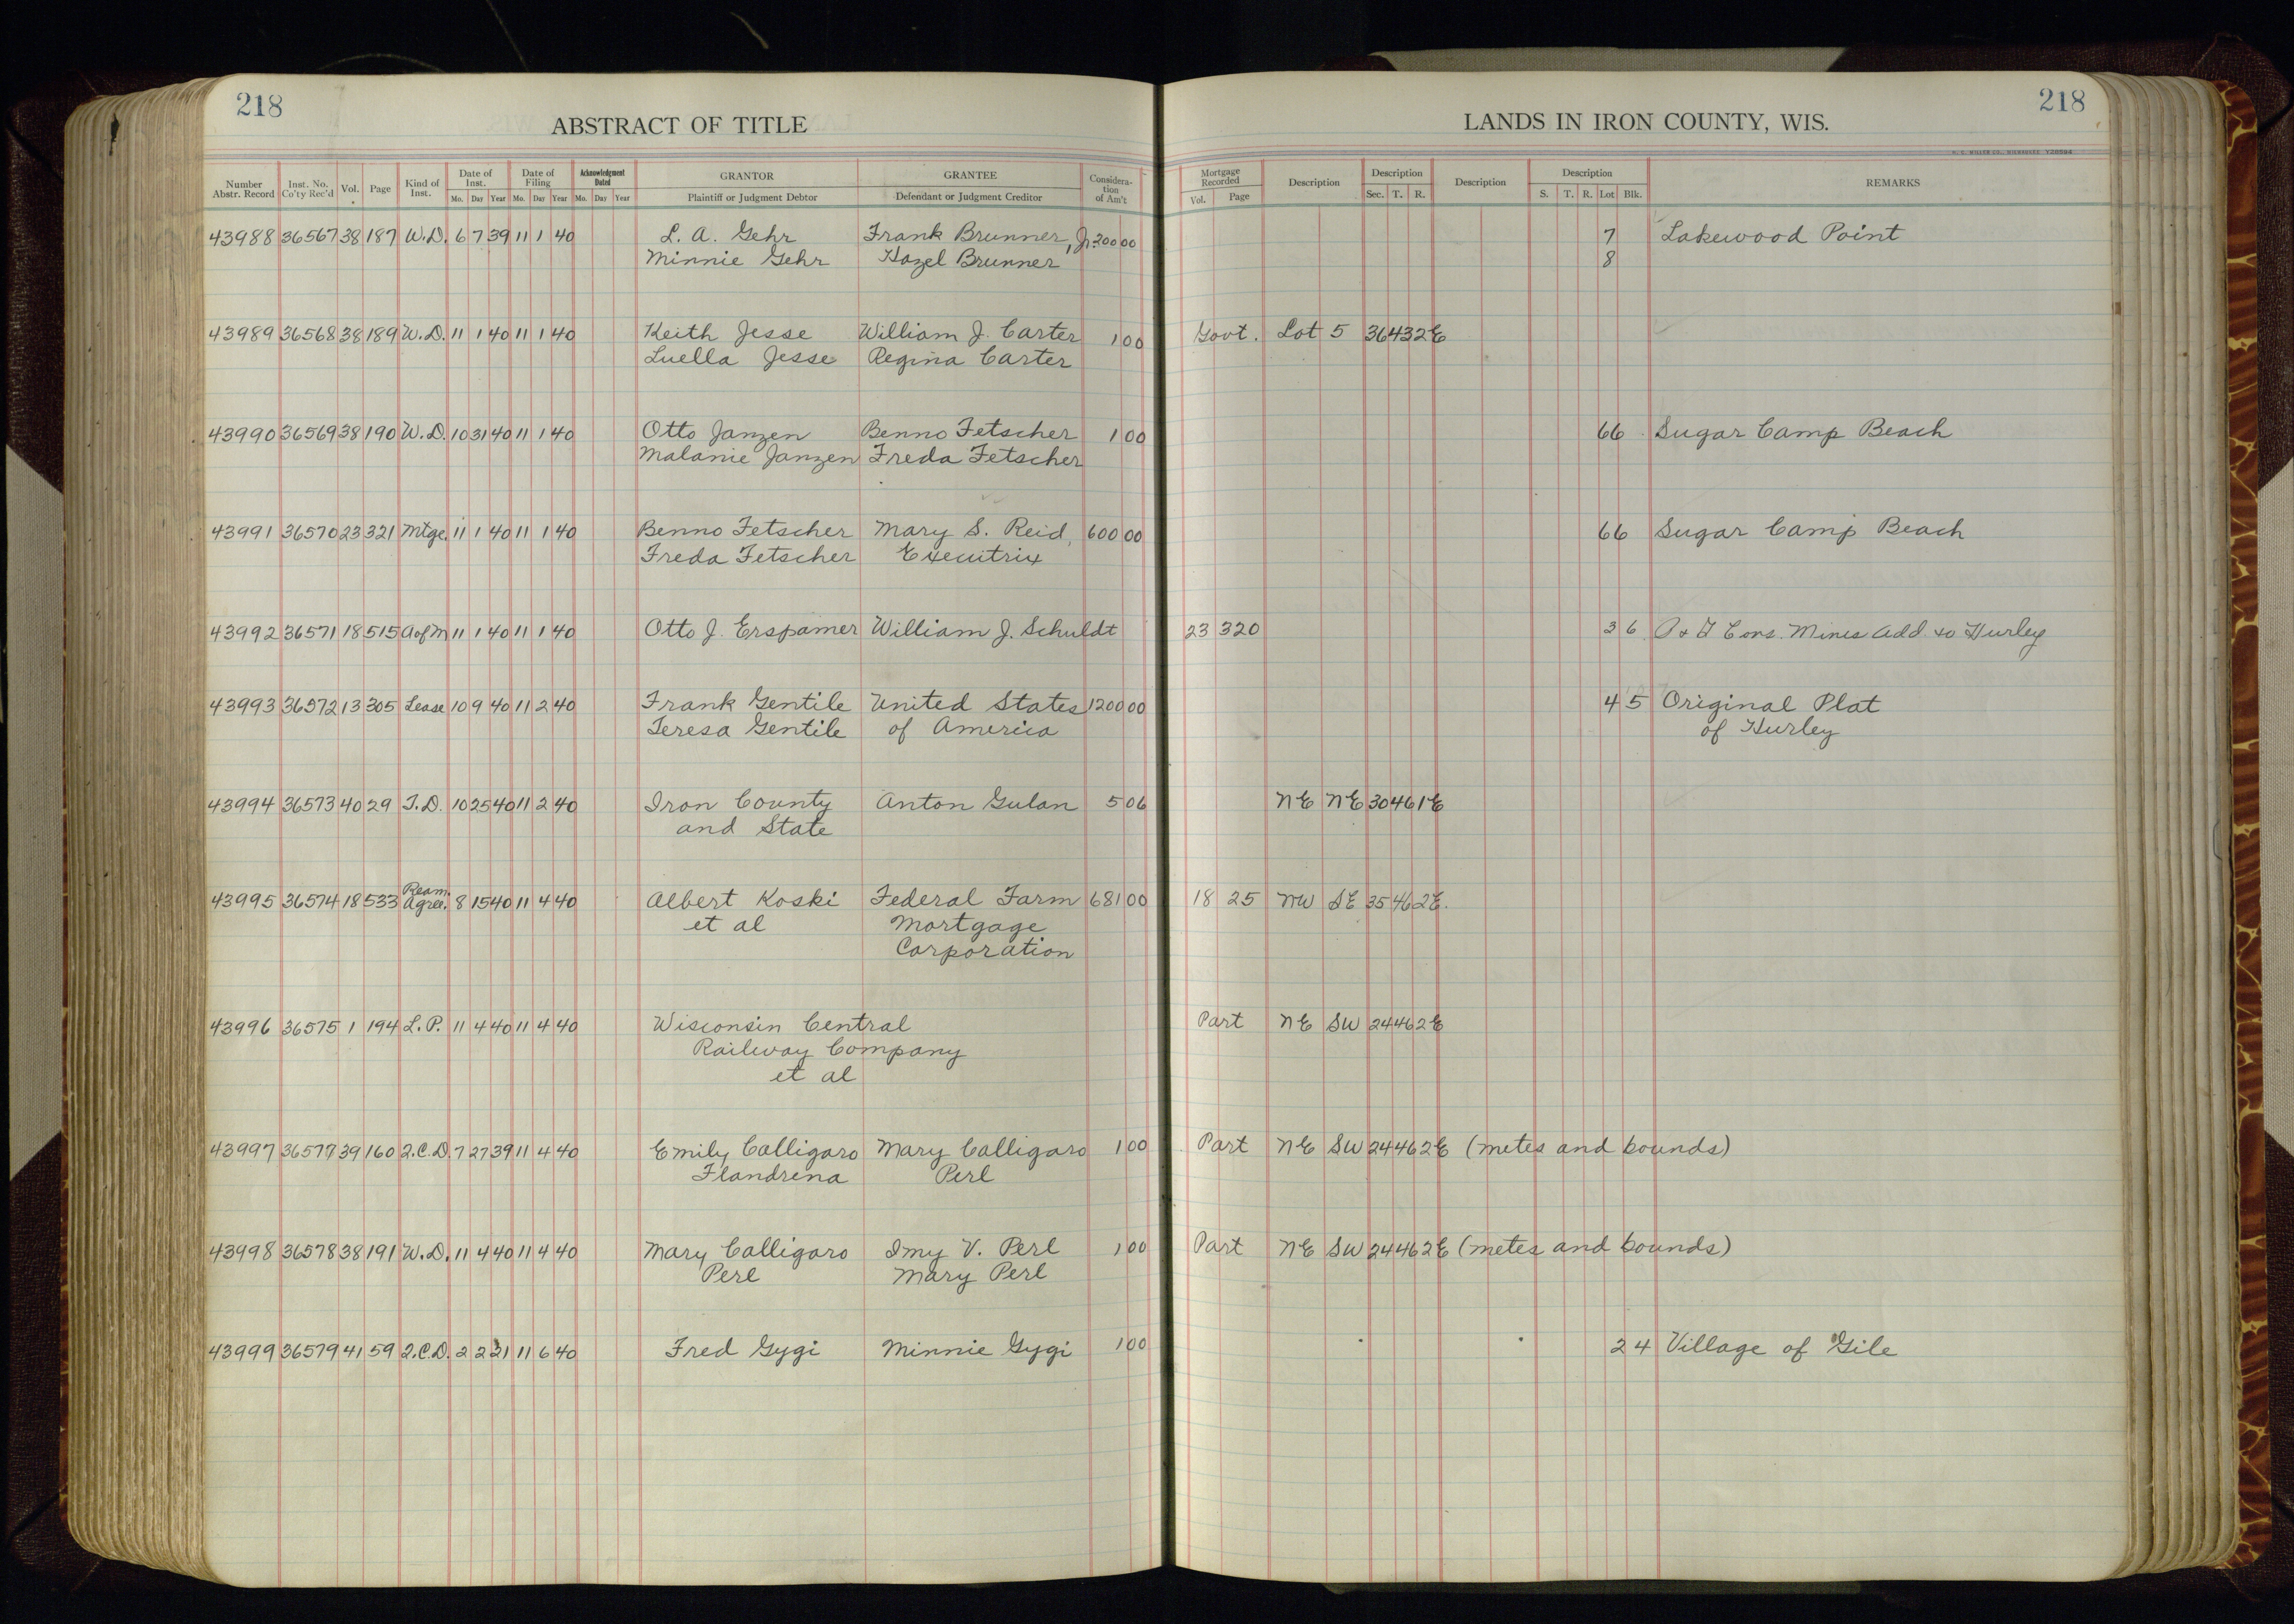 218
ABSTRACT OF TITLE
LANDS IN IRON COUNTY, WIS.
218
Number Abstr. Record | Inst. No. Co'ty Rec'd | Vol. | Page | Kind of Inst. | Date of Inst. Mo. Day Year | Date of Filing Mo. Day Year | Acknowledgment Dated Mo. Day Year | GRANTOR Plaintiff or Judgment Debtor | GRANTEE Defendant or Judgment Creditor | Consideration of Am't | Mortgage Recorded Vol. Page | Description | Description Sec. T. R. | Description | Description S. T. R. Lot Blk. | REMARKS
43988 36567 38 187 W.D. 6 7 39 11 1 40 L. A. Gehr Frank Brunner, Jr. 200 00 7 Lakewood Point
Minnie Gehr Hazel Brunner 8
43989 36568 38 189 W.D. 11 1 40 11 1 40 Keith Jesse William J. Carter 1 00 Govt. Lot 5 36 43 2E
Luella Jesse Regina Carter
43990 36569 38 190 W.D. 10 31 40 11 1 40 Otto Janzen Benno Fetscher 1 00 66 Sugar Camp Beach
Malanie Janzen Freda Fetscher
43991 36570 23 321 Mtge. 11 1 40 11 1 40 Benno Fetscher Mary S. Reid, 600 00 66 Sugar Camp Beach
Freda Fetscher Executrix
43992 36571 18 515 A of M 11 1 40 11 1 40 Otto J. Erspamer William J. Schuldt 23 320 3 6 Cons. Mines Add. to Hurley
43993 36572 13 305 Lease 10 9 40 11 2 40 Frank Gentile United States 1200 00 4 5 Original Plat
Teresa Gentile of America of Hurley
43994 36573 40 29 T.D. 10 25 40 11 2 40 Iron County Anton Gulan 5 06 NE NE 30 46 1E
and State
43995 36574 18 533 Ream. Agree. 8 15 40 11 4 40 Albert Koski Federal Farm 681 00 18 25 NW SE 35 46 2E.
et al Mortgage
Corporation
43996 36575 1 194 L.P. 11 4 40 11 4 40 Wisconsin Central Part NE SW 24 46 2E
Railway Company
et al
43997 36577 39 160 Q.C.D. 7 27 39 11 4 40 Emily Calligaro Mary Calligaro 1 00 Part NE SW 24 46 2E (metes and bounds)
Flandrena Perl
43998 36578 38 191 W.D. 11 4 40 11 4 40 Mary Calligaro Imy V. Perl 1 00 Part NE SW 24 46 2E (metes and bounds)
Perl Mary Perl
43999 36579 41 59 Q.C.D. 2 2 21 11 6 40 Fred Gygi Minnie Gygi 1 00 2 4 Village of Gile